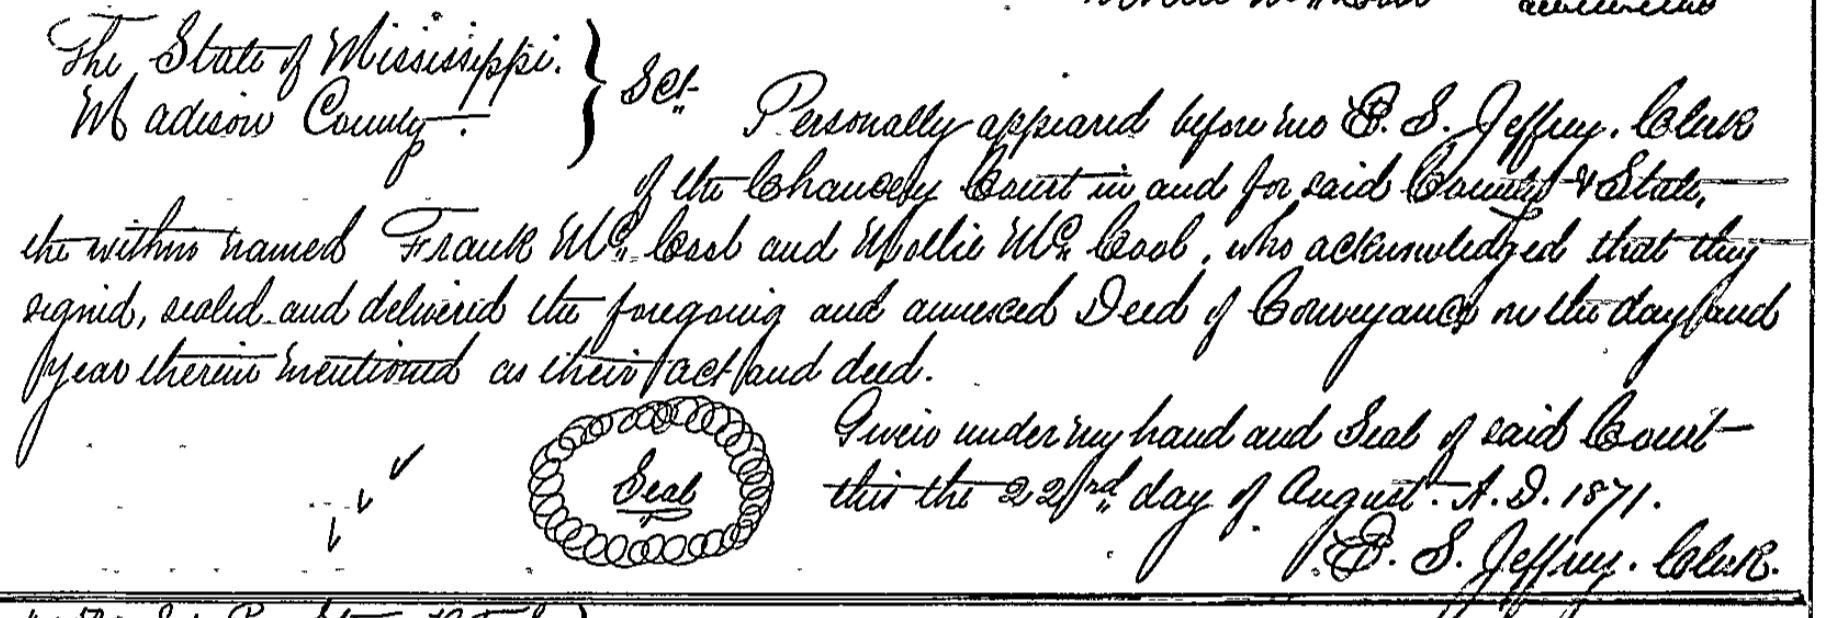 The State of Mississippi.
Madison County.
} Sct.
Personally appeared before me E. S. Jeffrey. Clerk
of the Chancery Court in and for said County & State,
the within named Frank Mc. Cool and Mollie Mc. Cool, who acknowledged that they
signed, sealed and delivered the foregoing and annexed Deed of Conveyance on the day and
year therein mentioned as their act and deed.
Given under my hand and Seal of said Court
Seal
this the 22nd day of August. A. D. 1871.
E. S. Jeffrey. Clerk.